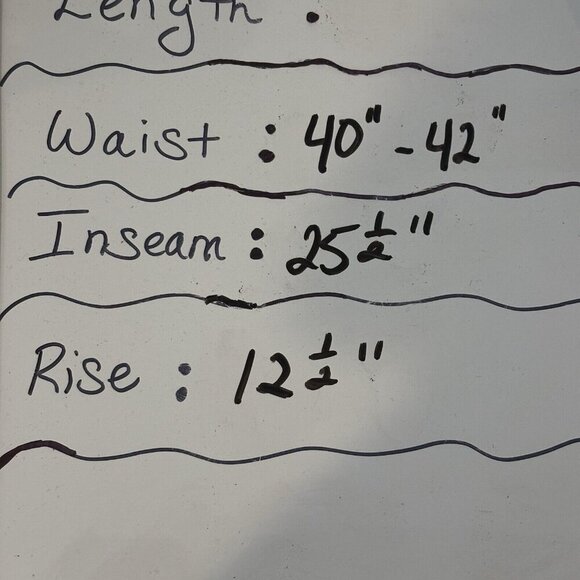 Length :
Waist : 40" - 42"
Inseam : 25 1/2"
Rise : 12 1/2"